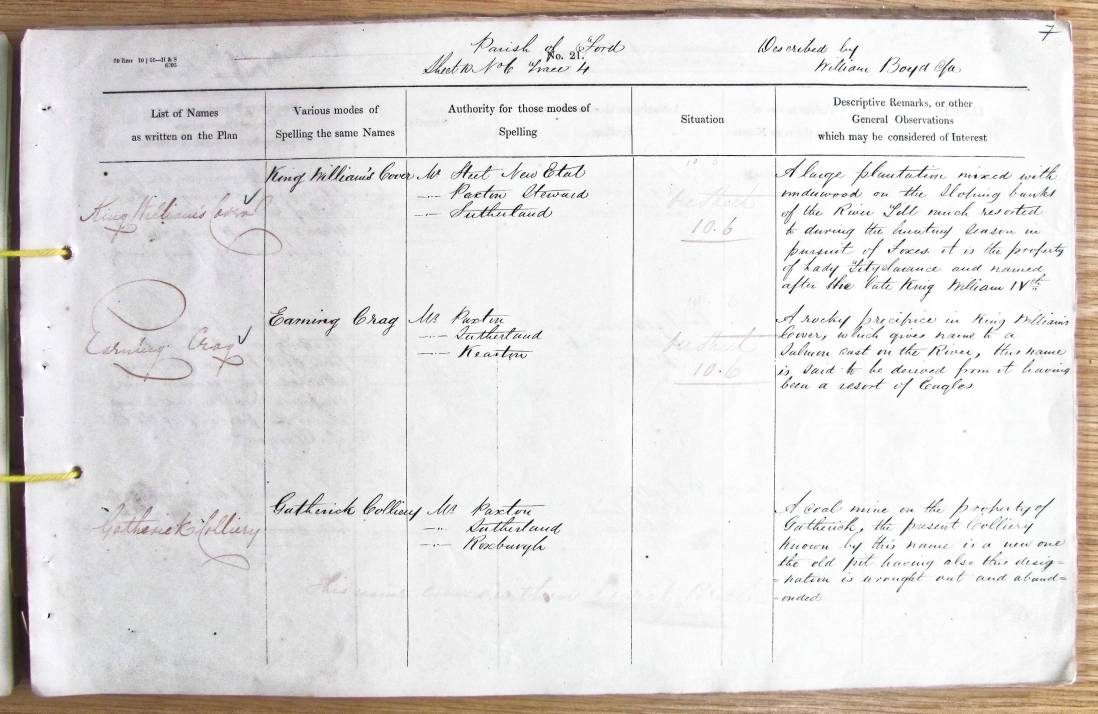 7
Parish of Ford
No. 21.
Described by
Sheet 10 No 6 Trace 4
William Boyd C/a
List of Names
as written on the Plan
Various modes of
Spelling the same Names
Authority for those modes of
Spelling
Situation
Descriptive Remarks, or other
General Observations
which may be considered of Interest
King William's Cover
King William's Cover
Mr Steet New Etal
Paxton Steward
Sutherland
10.6
A large plantation mixed with
underwood on the Sloping banks
of the River Till much resorted
to during the hunting Season in
pursuit of Foxes it is the property
of Lady Fitzclarance and named
after the late King William IVth
Earning Crag
Earning Crag
Mr Paxton
Sutherland
Keaston
10.6
A rocky precipice in King William's
Cover, which gives name to a
Salmon cast on the River, this name
is Said to be derived from it having
been a resort of Eagles
Gatherick Colliery
Gatherick Colliery
Mr Paxton
Sutherland
Roxburgh
A coal mine on the property of
Gatherick, the present Colliery
known by this name is a new one
the old pit having also this desig=
=nation is wrought out and aband=
=onded